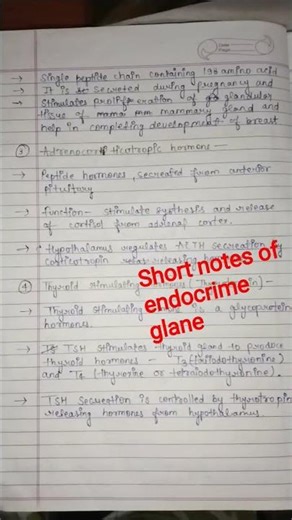 → Single peptide chain containing 198 amino acid
→ It is secreted during pregnancy and
→ Stimulates proliferation of glandular
tissue of mammary gland and
help in completing development of breast
③ Adrenocorticotropic hormone —
→ Peptide hormones, secreted from anterior
pituitary
→ Function - stimulate synthesis and release
of cortisol from adrenal cortex.
→ Hypothalamus regulates ACTH secretion by
corticotropin releasing
④ Thyroid stimulating
→ Thyroid stimulating is a glycoprotein
hormones.
→ TSH stimulates thyroid gland to produce
thyroid hormones - T3 (triiodothyronine)
and T4 (thyroxine or tetraiodothyronine).
→ TSH secreation is controlled by thyrotropin
releasing hormones from hypothalamus.
Short notes of
endocrime
glane